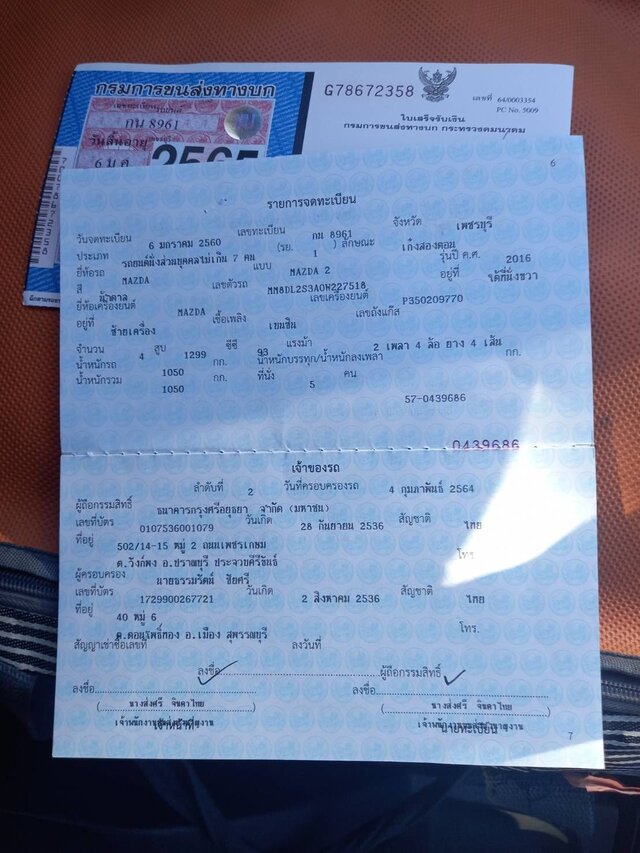 กรมการขนส่งทางบก
กน 8961
วันสิ้นอายุ
6 ม.ค.
2565
G78672358
เลขที่ 64/0003354
PC No. 5009
ใบเสร็จรับเงิน
กรมการขนส่งทางบก กระทรวงคมนาคม
6
รายการจดทะเบียน
วันจดทะเบียน 6 มกราคม 2560 เลขทะเบียน กน 8961 จังหวัด เพชรบุรี
ประเภท รถยนต์นั่งส่วนบุคคลไม่เกิน 7 คน (รย. 1 ) ลักษณะ เก๋งสองตอน
ยี่ห้อรถ MAZDA แบบ MAZDA 2 รุ่นปี ค.ศ. 2016
สี น้ำตาล เลขตัวรถ MM8DL2S3A0W227518 อยู่ที่ ใต้ที่นั่งขวา
ยี่ห้อเครื่องยนต์ MAZDA เลขเครื่องยนต์ P350209770
อยู่ที่ ซ้ายเครื่อง เชื้อเพลิง เบนซิน เลขถังแก๊ส
จำนวน 4 สูบ 1299 ซีซี 93 แรงม้า 2 เพลา 4 ล้อ ยาง 4 เส้น
น้ำหนักรถ 1050 กก. น้ำหนักบรรทุก/น้ำหนักลงเพลา กก.
น้ำหนักรวม 1050 กก. ที่นั่ง 5 คน
57-0439686
0439686
เจ้าของรถ
ลำดับที่ 2 วันที่ครอบครองรถ 4 กุมภาพันธ์ 2564
ผู้ถือกรรมสิทธิ์ ธนาคารกรุงศรีอยุธยา จำกัด (มหาชน)
เลขที่บัตร 0107536001079 วันเกิด 28 กันยายน 2536 สัญชาติ ไทย
ที่อยู่ 502/14-15 หมู่ 2 ถนนเพชรเกษม
ต.วังก์พง อ.ปราณบุรี ประจวบคีรีขันธ์ โทร.
ผู้ครอบครอง นายธรรมรัตน์ ชัยศรี
เลขที่บัตร 1729900267721 วันเกิด 2 สิงหาคม 2536 สัญชาติ ไทย
ที่อยู่ 40 หมู่ 6
ต.ดอนโพธิ์ทอง อ.เมือง สุพรรณบุรี โทร.
สัญญาเช่าซื้อเลขที่ ลงวันที่
ลงชื่อ ผู้ถือกรรมสิทธิ์
ลงชื่อ ลงชื่อ
(นางส่งศรี จินดาไทย) (นางส่งศรี จินดาไทย)
เจ้าหน้าที่ นายทะเบียน
7